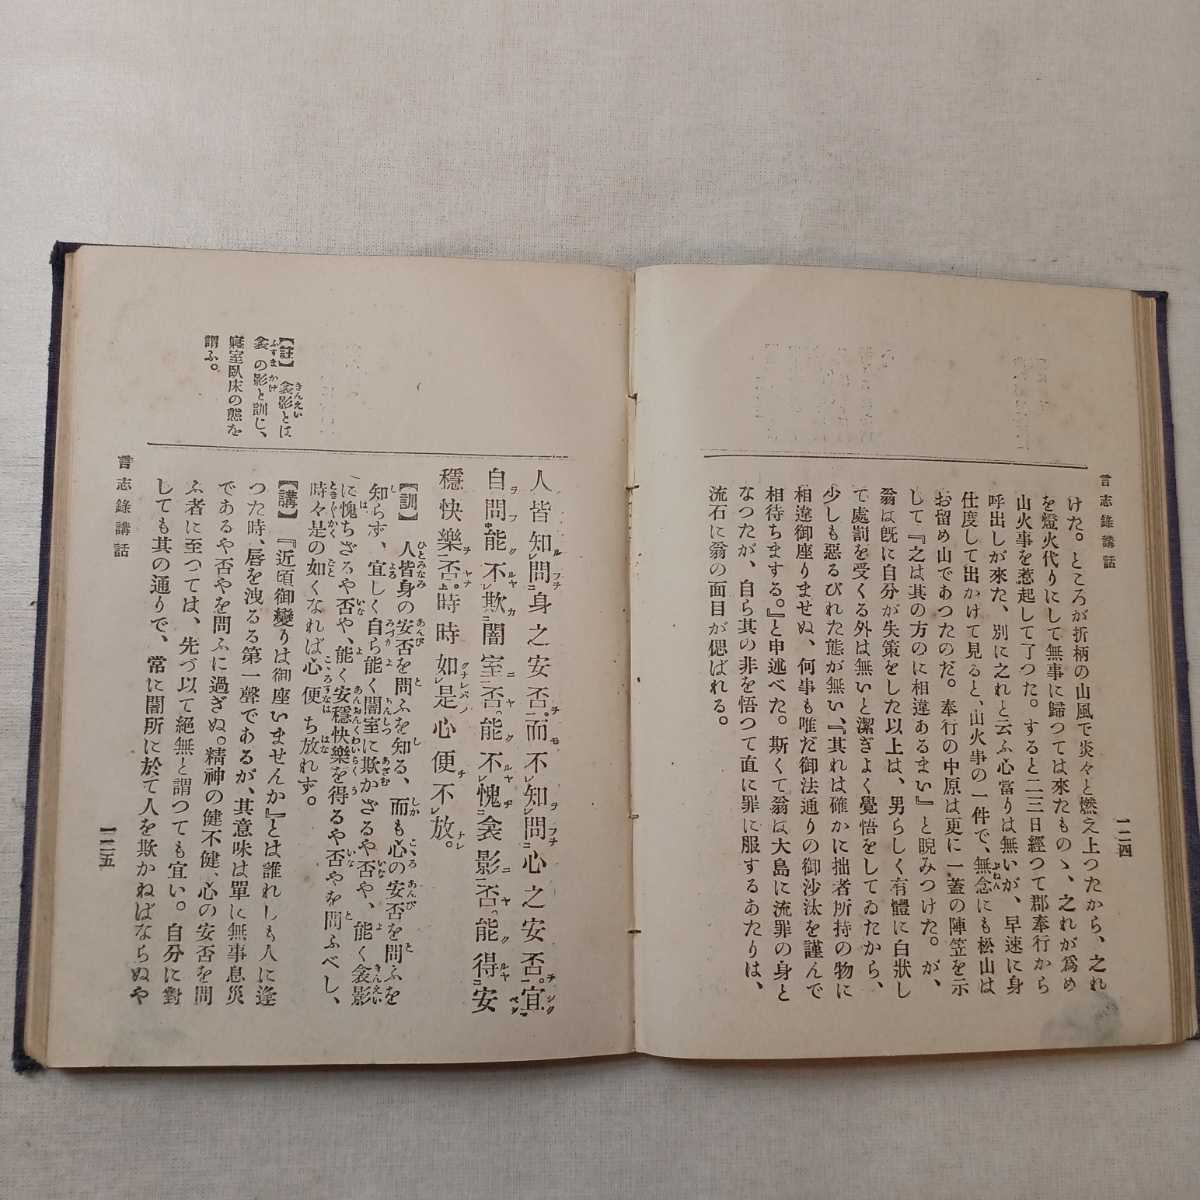 言志錄講話
一二四
けた。ところが折柄の山風で炎々と燃え上つたから、之れ
を燈火代りにして無事に歸つては來たものゝ、之れが爲め
山火事を惹起して了つた。すると二三日經つて郡奉行から
呼出しが來た、別に之れと云ふ心當りは無いが、早速に身
仕度して出かけて見ると、山火事の一件で、無念にも松山は
お留め山であつたのだ。奉行の中原は更に一蓋の陣笠を示
して『之は其の方のに相違あるまい』と睨みつけた。が、
翁は既に自分が失策をした以上は、男らしく有體に白狀し
て處罰を受くる外は無いと潔ぎよく覺悟をしてゐたから、
少しも惡るびれた態が無い、『其れは確かに拙者所持の物に
相違御座りませぬ、何事も唯だ御法通りの御沙汰を謹んで
相待ちまする。』と申述べた。斯くて翁は大島に流罪の身と
なつたが、自ら其の非を悟つて直に罪に服するあたりは、
流石に翁の面目が偲ばれる。
人皆知問身之安否。而不知問心之安否。宜
自問能不欺闇室否。能不愧衾影否。能得安
穩快樂否。時時如是心便不放。
【訓】 人皆身の安否を問ふを知る、而も心の安否を問ふを
知らず、宜しく自ら能く闇室に欺かざるや否や、能く衾影
に愧ちざるや否や、能く安穩快樂を得るや否やを問ふべし、
時々是の如くなれば心便ち放れず。
【講】 『近頃御變りは御座いませんか』とは誰れしも人に逢
つた時、唇を洩るる第一聲であるが、其意味は單に無事息災
であるや否やを問ふに過ぎぬ。精神の健不健、心の安否を問
ふ者に至つては、先づ以て絕無と謂つても宜い。自分に對
しても其の通りで、常に闇所に於て人を欺かねばならぬや
【註】 衾影とは
衾の影と訓じ、
寢室臥床の態を
謂ふ。
言志錄講話
一二五